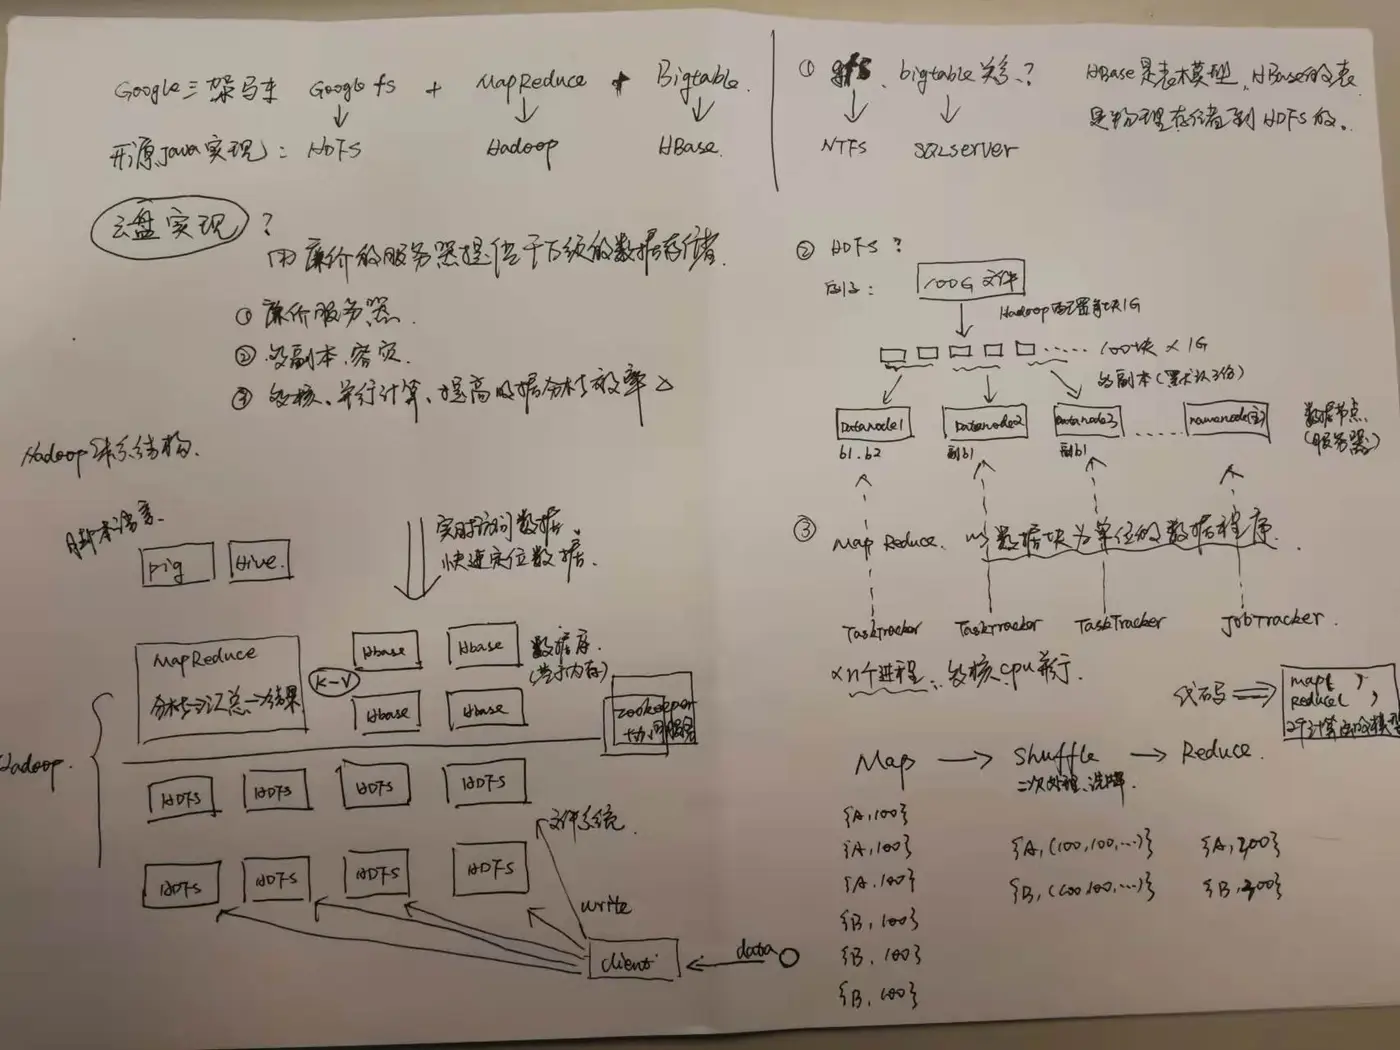 Google三架马车 Google fs + MapReduce + Bigtable.
开源Java实现: HDFS Hadoop HBase.
云盘实现?
用廉价的服务器提供千万级的数据存储.
① 廉价服务器.
② 多副本、容灾.
③ 多核、并行计算、提高数据分析效率
Hadoop体系结构.
脚本语言.
pig Hive.
实时访问数据.
快速定位数据.
MapReduce
分析→汇总→结果
K-V
Hbase Hbase
Hbase Hbase
数据库
(基于内存)
zookeeper
协同服务
Hadoop.
HDFS HDFS HDFS HDFS
HDFS HDFS HDFS HDFS
文件系统.
write
client
data
① gfs、bigtable关系?
NTFS SQLserver
HBase是表模型, HBase的表
是物理存储到HDFS的.
② HDFS?
例子:
100G文件
Hadoop配置每块1G
...... 100块×1G
多副本(默认3份)
Datanode1 Datanode2 Datanode3 ...... namenode(主)
b1.b2 副b1 副b1
数据节点
(服务器)
③ Map Reduce. 以数据块为单位的数据程序.
TaskTracker TaskTracker TaskTracker JobTracker.
×n个进程. 多核cpu并行.
代码
map( )
reduce( )
Map → Shuffle → Reduce.
二次处理、洗牌.
{A,100}
{A,100} {A,(100,100,...)} {A,300}
{A,100} {B,(100,100,...)} {B,300}
{B,100}
{B,100}
{B,100}